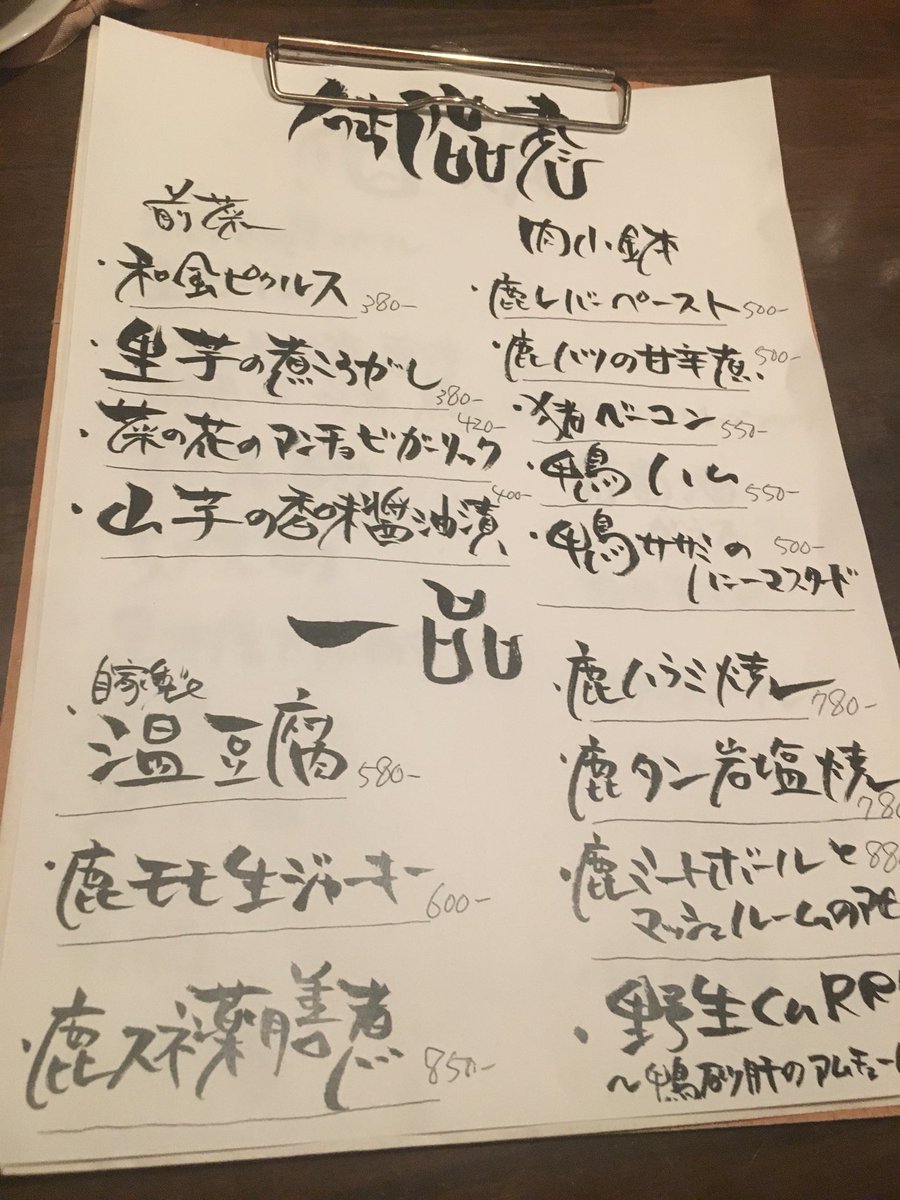 御品書
前菜
・和金ピクルス 380-
・里芋の煮ころがし 380-
・菜の花のアンチョビガーリック 420-
・山芋の香味醤油漬 400-
肉小鉢
・鹿レバーペースト 500-
・鹿ハツの甘辛煮 500-
・猪ベーコン 550-
・鴨ハム 550-
・鴨ササミの 500-
ハニーマスタード
一品
自家製
・温豆腐 580-
・鹿モモ生ジャーキー 600-
・鹿スネ薬膳煮 850-
・鹿ハラミ焼 780-
・鹿タン岩塩焼 780
・鹿ミートボールと 88
マッシュルームのアヒ
・野生CuRR
〜鴨砂肝のアムチュー